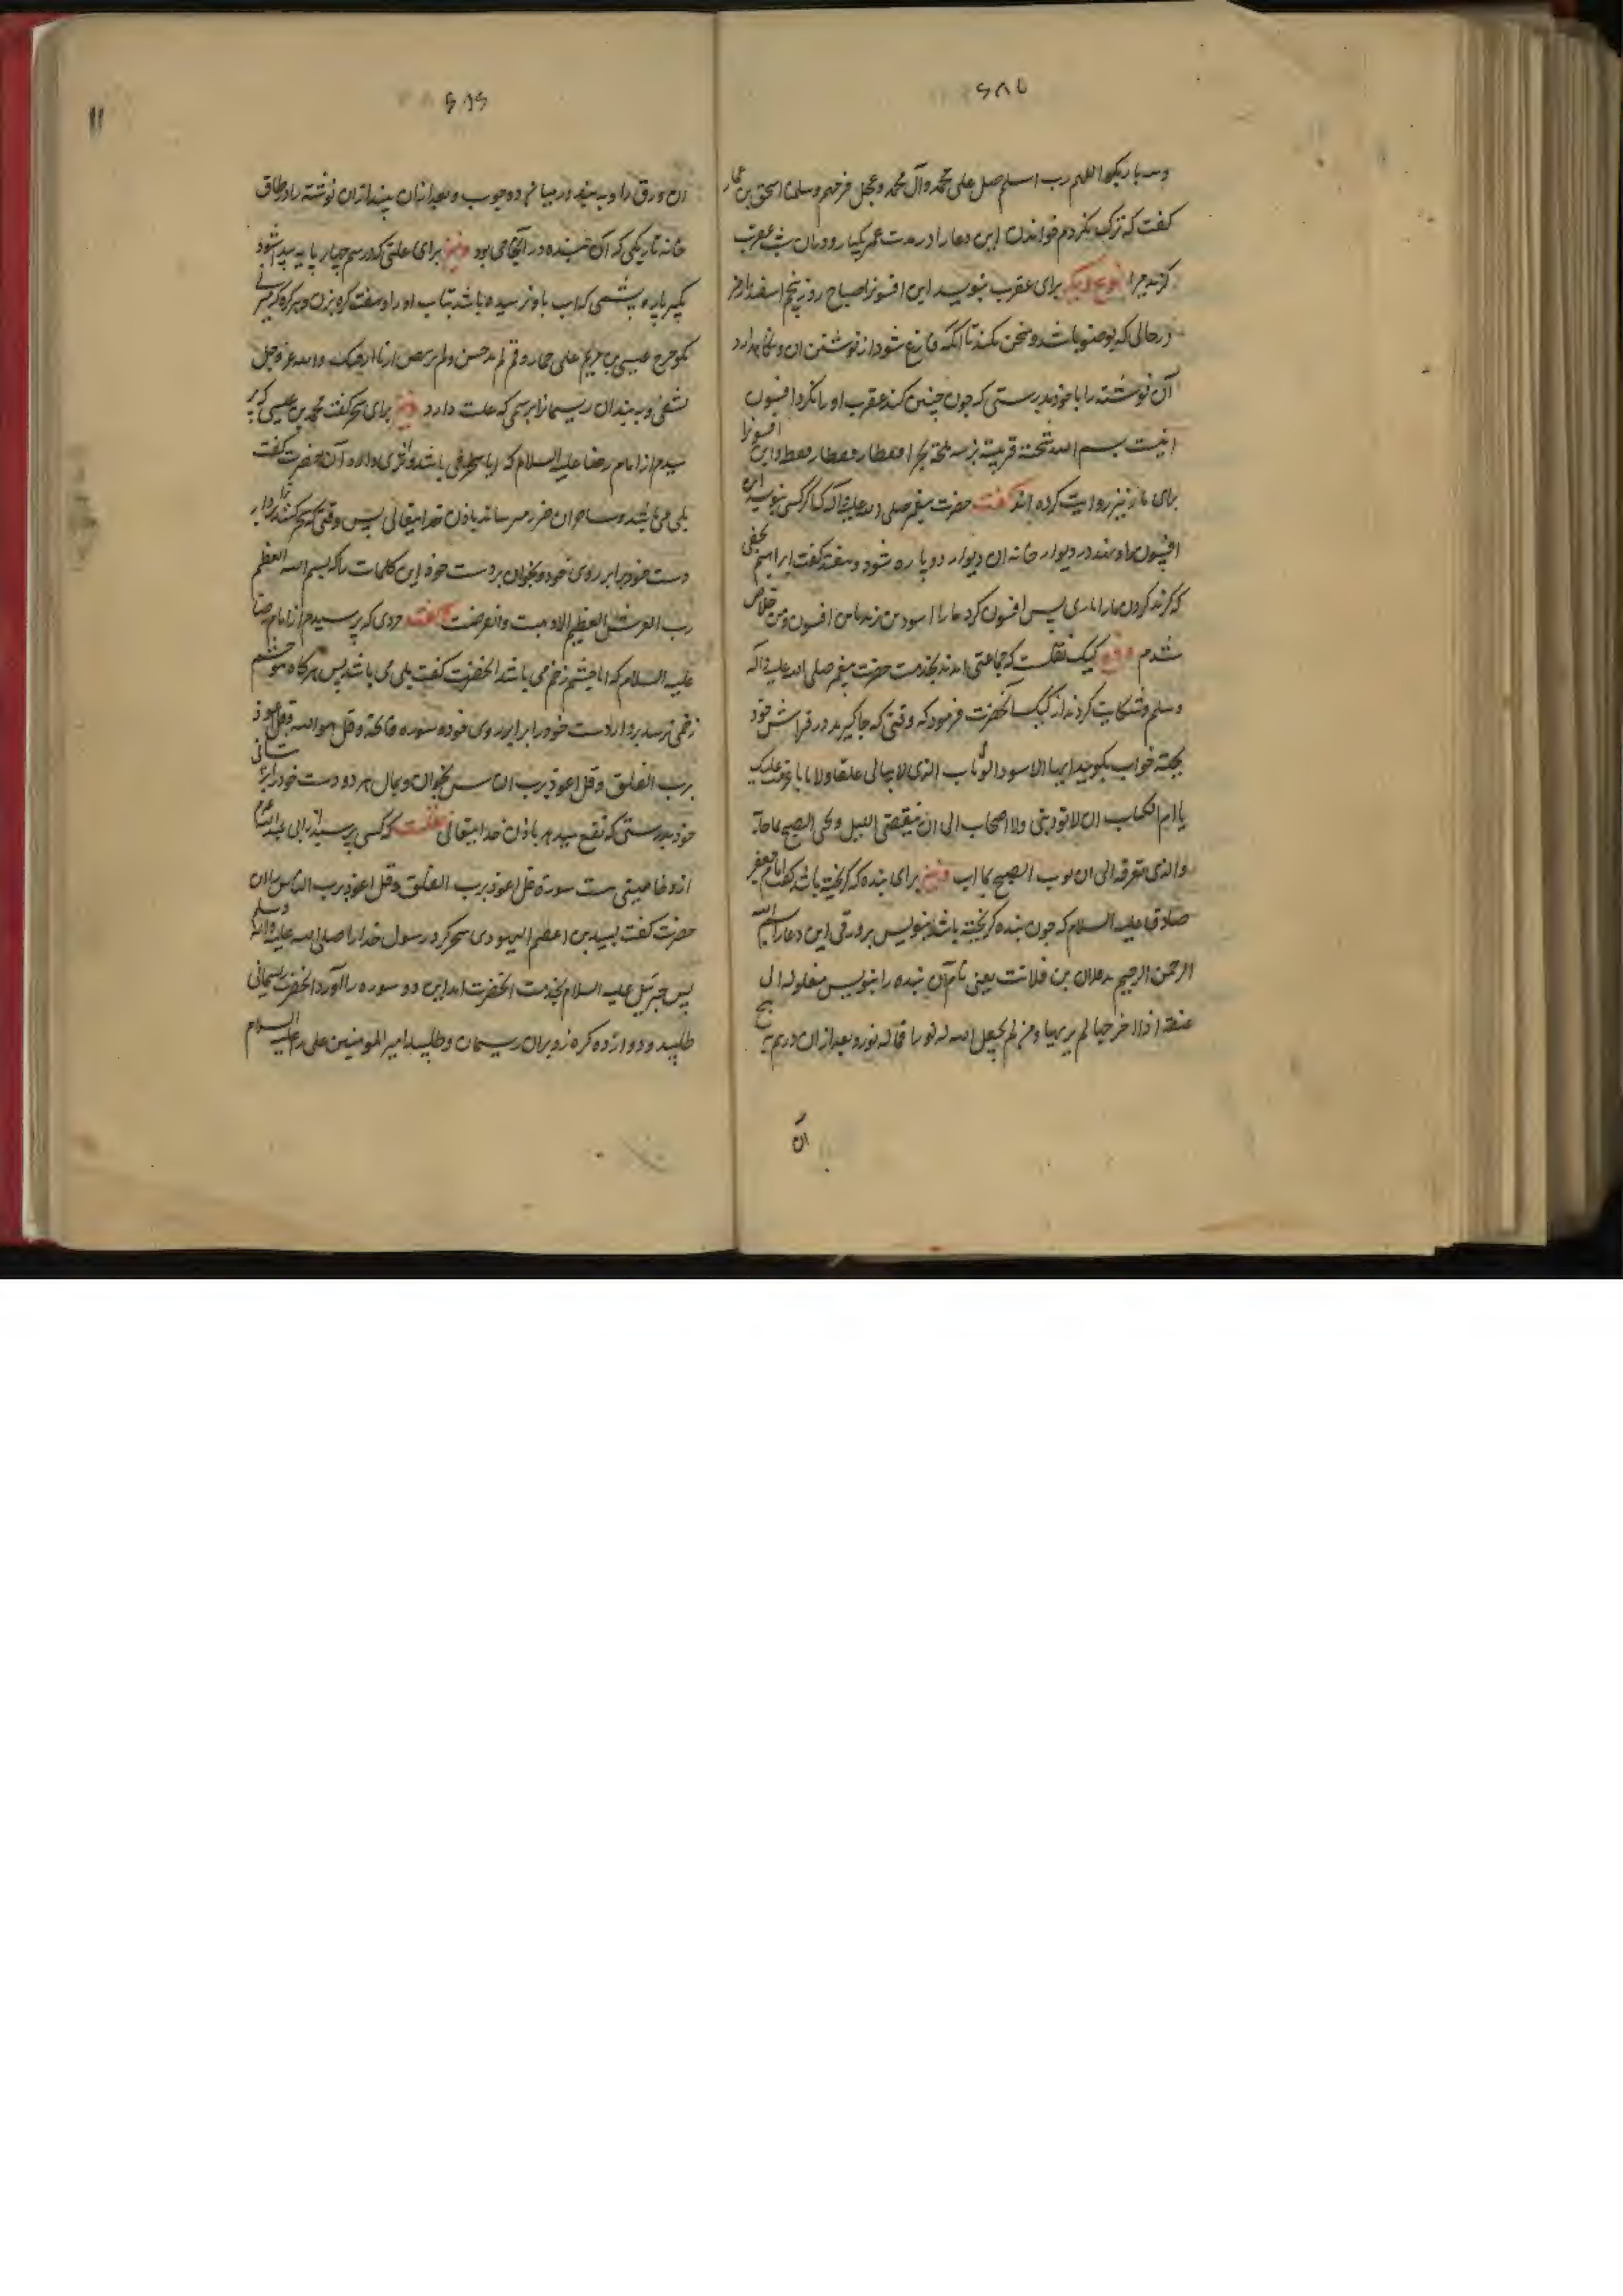 ۶۸۵
وسه بار بگو اللهم رب اسلم صل علی محمد وآل محمد وعجل فرجهم وسلمنا اسحق بن عمار
گفت که ترک نکردم خواندن این دعا را در مدت عمر یکبار ودران شب عقرب
گزید مرا نوع دیگر برای عقرب بنویسد این افسونرا صباح روز پنجم اسفندارمز
درحالی که بوضو باشد وسخن نکند تا آنکه فارغ شود از نوشتن ان ونگاهدارد
آن نوشته را باخود بدرستی که چون چنین کند عقرب اورا نگزد افسون
اینست بسم الله شجنة قرنیة بحرا قفطا وین افسونرا
برای مار نیز روایت کرده اند گفت حضرت پیغمبر صلی الله علیه واله که اگر کسی بنویسد این
افسون را در دیوار خانه ان دیوار دو پاره شود گفت ابراهیم نخعی
که گزند کردن مارا ماری پس افسون کرد ما را اسود من افسون ومن خلاص
شدم دفع کیک نقلست که جماعتی امدند بخدمت حضرت پیغمبر صلی الله علیه واله
وسلم وشکایت کردند از کیک آنحضرت فرمود که وقتی که جا گیرید در فراش خود
بجهته خواب بگویید ایها الاسود الوثاب الذی لا یبالی غلقا ولا بابا عزمت علیک
یا ام الکتاب ان لا توذینی ولا اصحابی الی ان ینقضی اللیل ویجی الصبح بما جآء
والذی تعرفه الی ان یوب الصبح بما اب وایضا برای بنده که گریخته باشد گفت امام جعفر
صادق علیه السلام که چون بنده گریخته باشد بنویس بر ورقی این دعا را بسم الله
الرحمن الرحیم ید فلان بن فلانت یعنی نام آن بنده را بنویس مغلوله الی
عنقه اذا اخرجها لم یریها ومن لم یجعل الله له نورا فما له من نور وبعد ازان در هم پیچ
ان
۶۸۶
۱۱
ان ورق را وبه بند در میانه دو چوب وبعد ازان بینداز ان نوشته را در طاق
خانه تاریکی که آن بنده در آنجا می بود وایضا برای علتی که در سم چهار پایه پیدا شود
بگیر پاره پشمی که اب باو نرسیده باشد بتاب او را وهفت گره بزن وهر گره که میزنی
بگو خرج عیسی بن مریم علی حمار والله عز وجل
یشفی وبه بند ان ریسمانرا بر سمی که علت دارد وایضا برای سحر گفت محمد بن عیسی که پر
سیدم از امام رضا علیه السلام که ایا سحر می باشد واثری دارد آن حضرت گفت
بلی می باشد وساحران ضرر میرسانند باذن خدایتعالی پس وقتی که سحر کنند ترا بردار
دست خود برابر روی خود وبخوان بر دست خود این کلمات را که بسم الله العظیم
رب العرش العظیم الا ذهبت وانقرضت گفت مردی که پرسیدم از امام رضا
علیه السلام که ایا چشم زخم می باشد انحضرت گفت بلی می باشد پس هرگاه بتو چشم
زخمی برسد بردار دست خود را برابر روی خود وسوره فاتحه وقل هو الله وقل اعوذ
برب الفلق وقل اعوذ برب الناس بخوان وبمال هر دو دست خود را بر پیشانی
خود بدرستی که نفع میدهد باذن خدایتعالی نقلست که کسی پرسید از ابی عبدالله علیه السلام
از سورة قل اعوذ برب الفلق وقل اعوذ برب الناس ان
حضرت گفت لبید بن اعصم الیهودی سحر کرد رسول خدا را صلی الله علیه واله وسلم
پس جبرئیل علیه السلام بخدمت انحضرت امد این دو سوره را آورد انحضرت ریسمانی
طلبید ودوازده گره زد بران ریسمان وطلبید امیر المومنین علی را علیه السلام